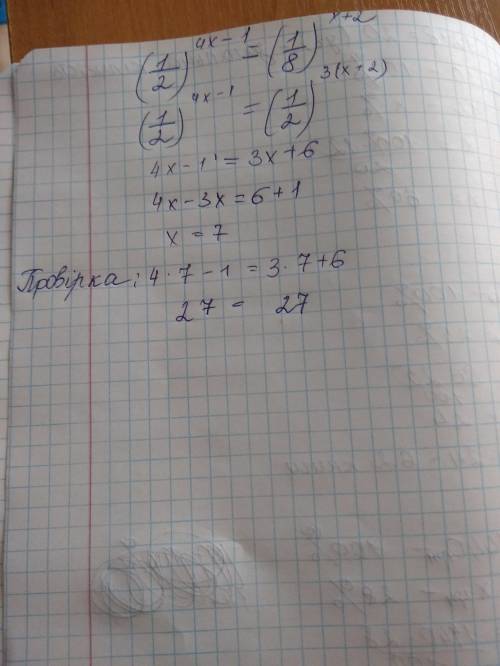 (1/2)^(4x-1) = (1/8)^(x+2)
(1/2)^(4x-1) = (1/2)^(3(x+2))
4x-1 = 3x+6
4x-3x=6+1
x = 7
Провірка: 4·7-1 = 3·7+6
27 = 27